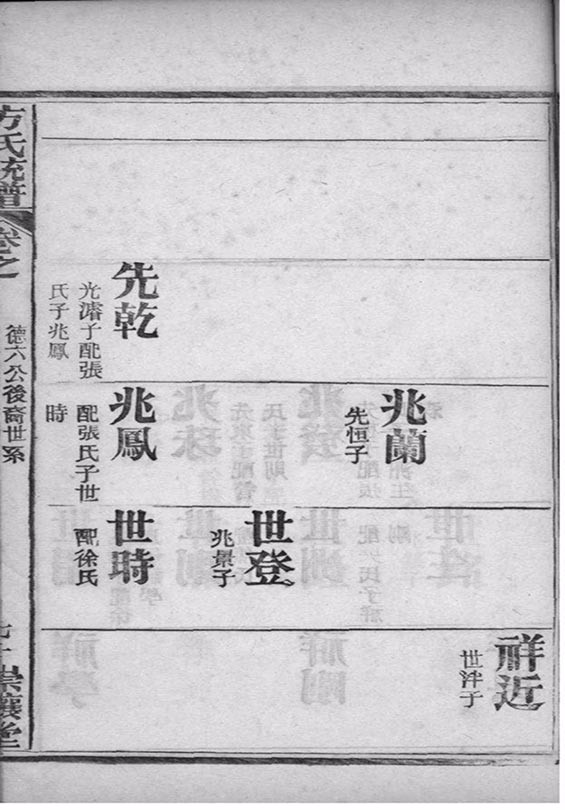 祥近
世泮子
兆蘭
先恒子
世登
兆景子
先乾
光濬子配張
氏子兆鳳
兆鳳
配張氏子世
時
世時
配徐氏
方氏統譜
卷之
德六公後裔世系
崇讓堂